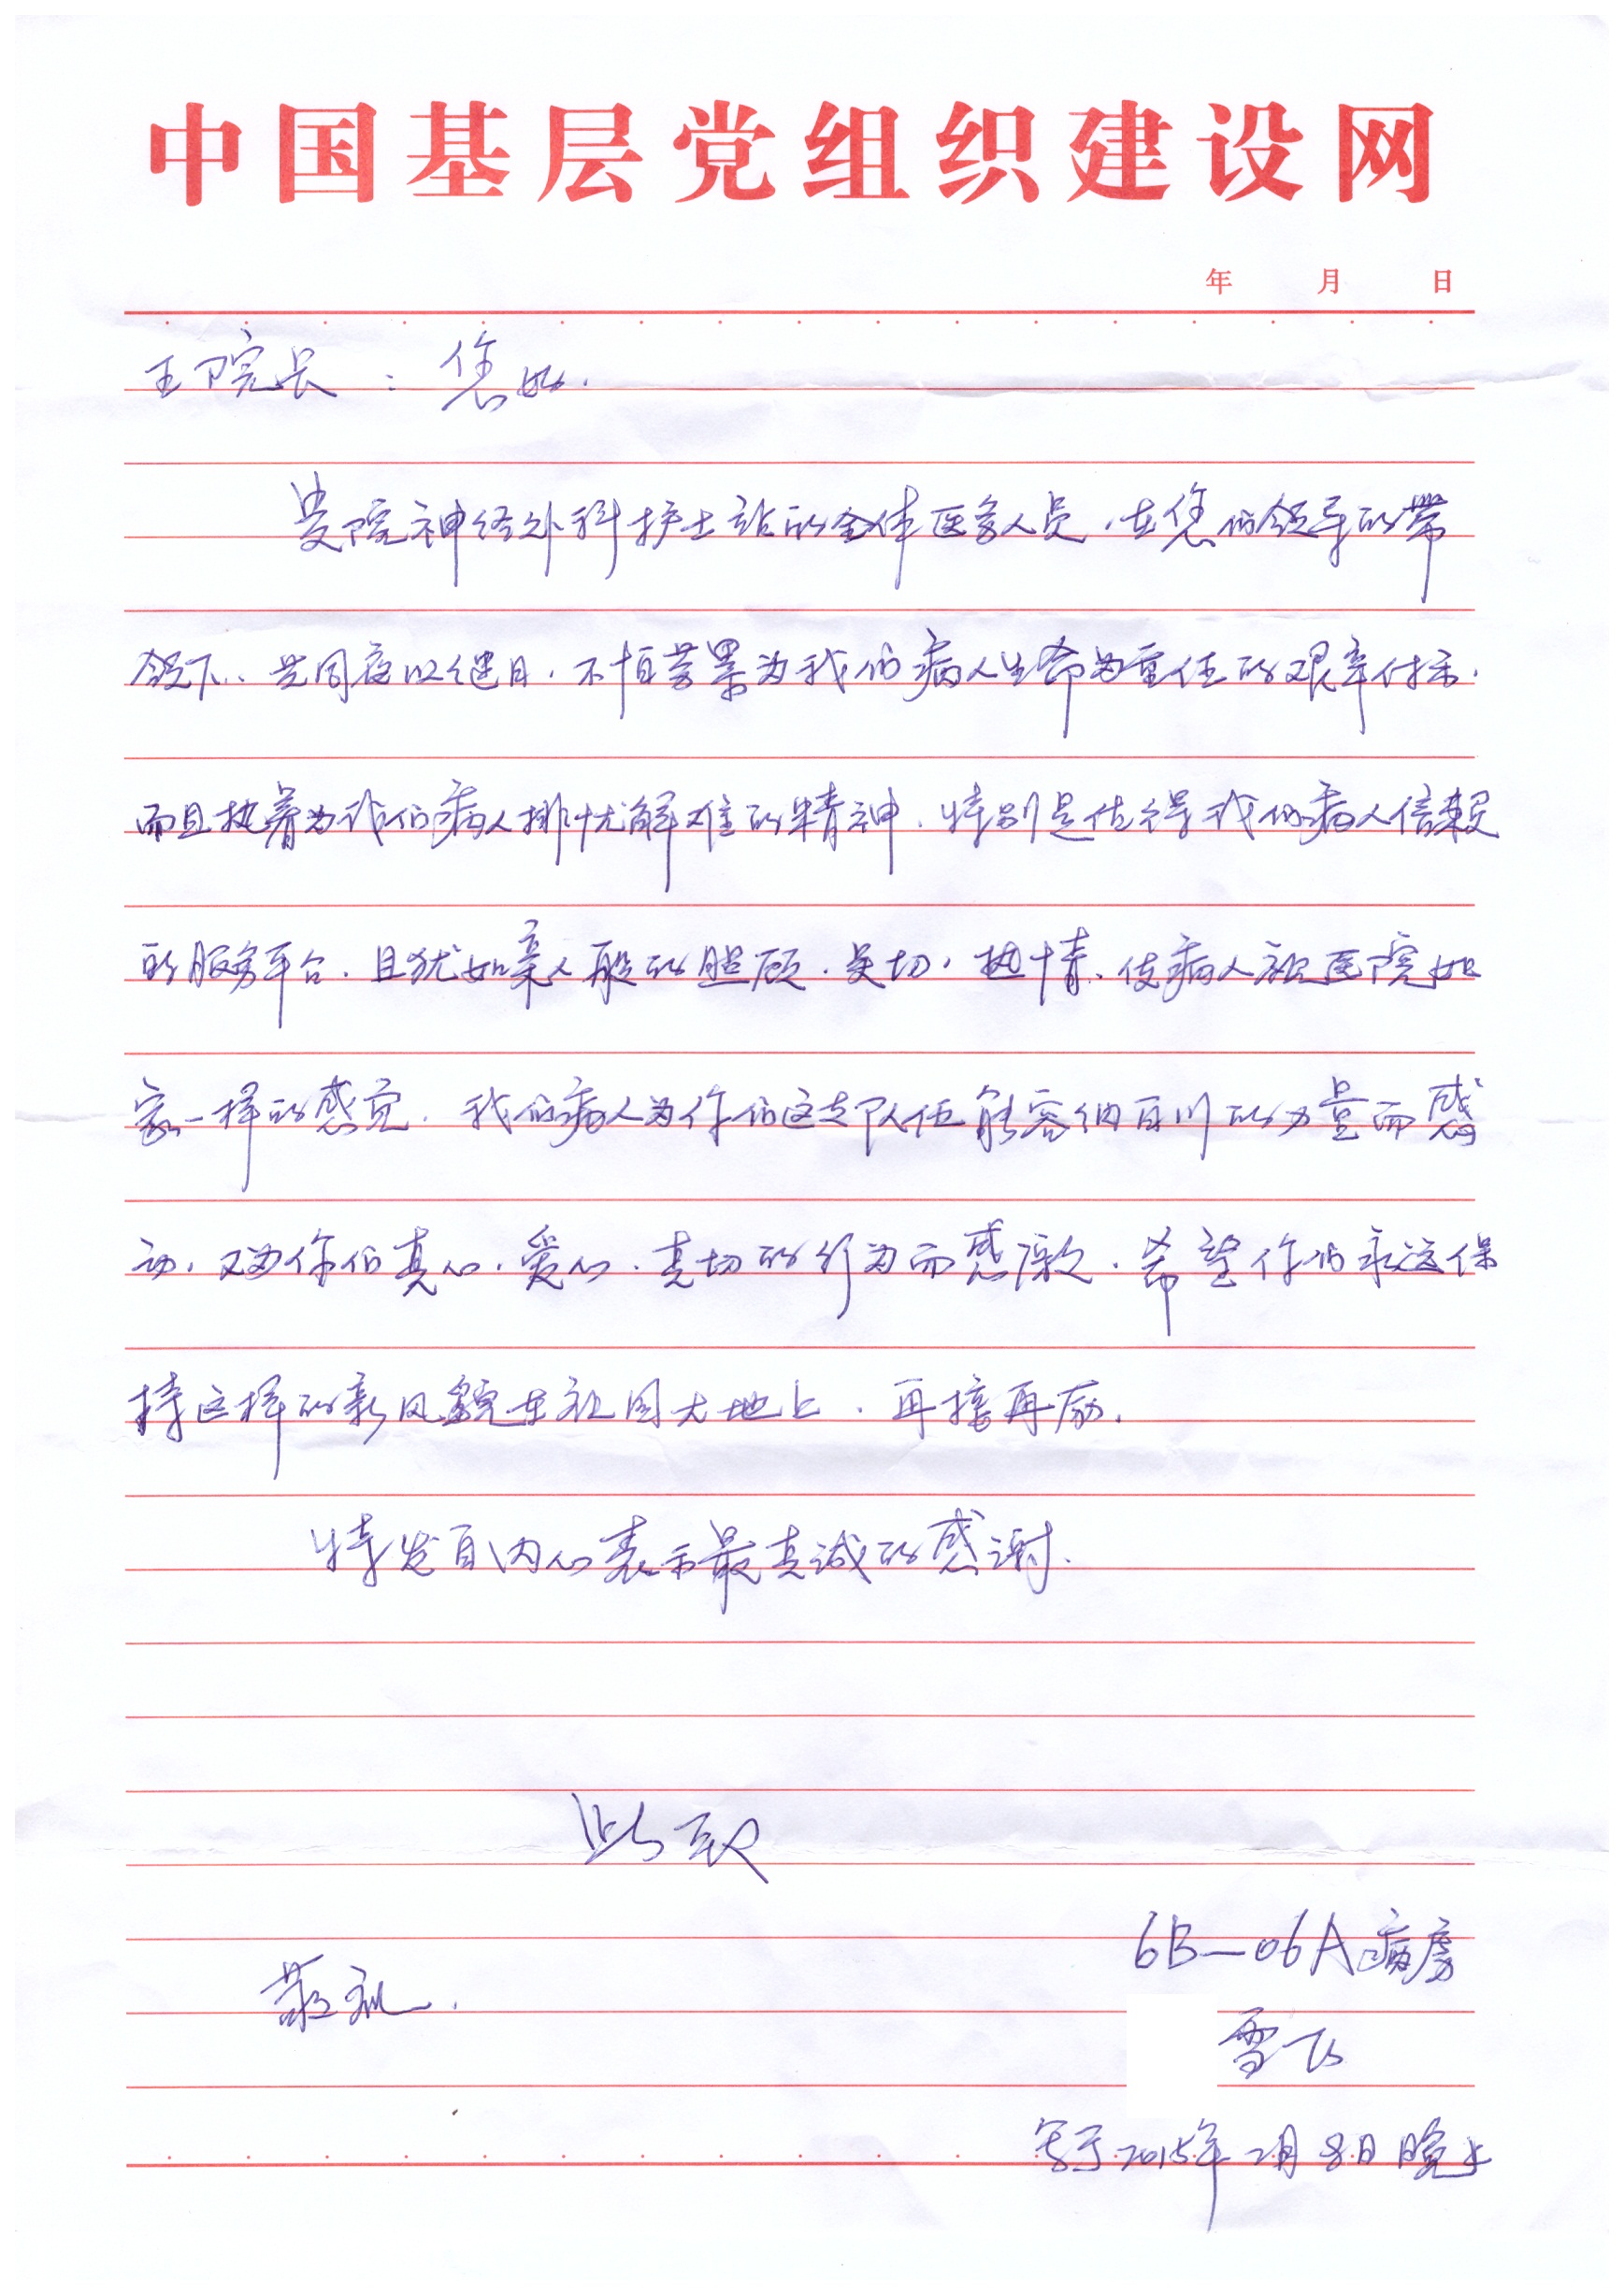 中国基层党组织建设网
年 月 日
王院长：您好.
贵院神经外科护士站的全体医务人员，在您们领导的带
领下、共同夜以继日，不怕劳累为我们病人生命为重任的艰辛付出，
而且执着为我们病人排忧解难的精神，特别是值得我们病人信赖
的服务平台，且犹如亲人般的照顾，关切，热情，使病人视医院如
家一样的感觉，我们病人为你们这支队伍能容纳百川的力量而感
动，又为你们真心，爱心，真切的行为而感激，希望你们永远保
持这样的新风貌在祖国大地上，再接再厉。
特发自内心表示最真诚的感谢.
此致
6B—06A病房
敬礼.
雪飞
写于2015年2月8日晚上